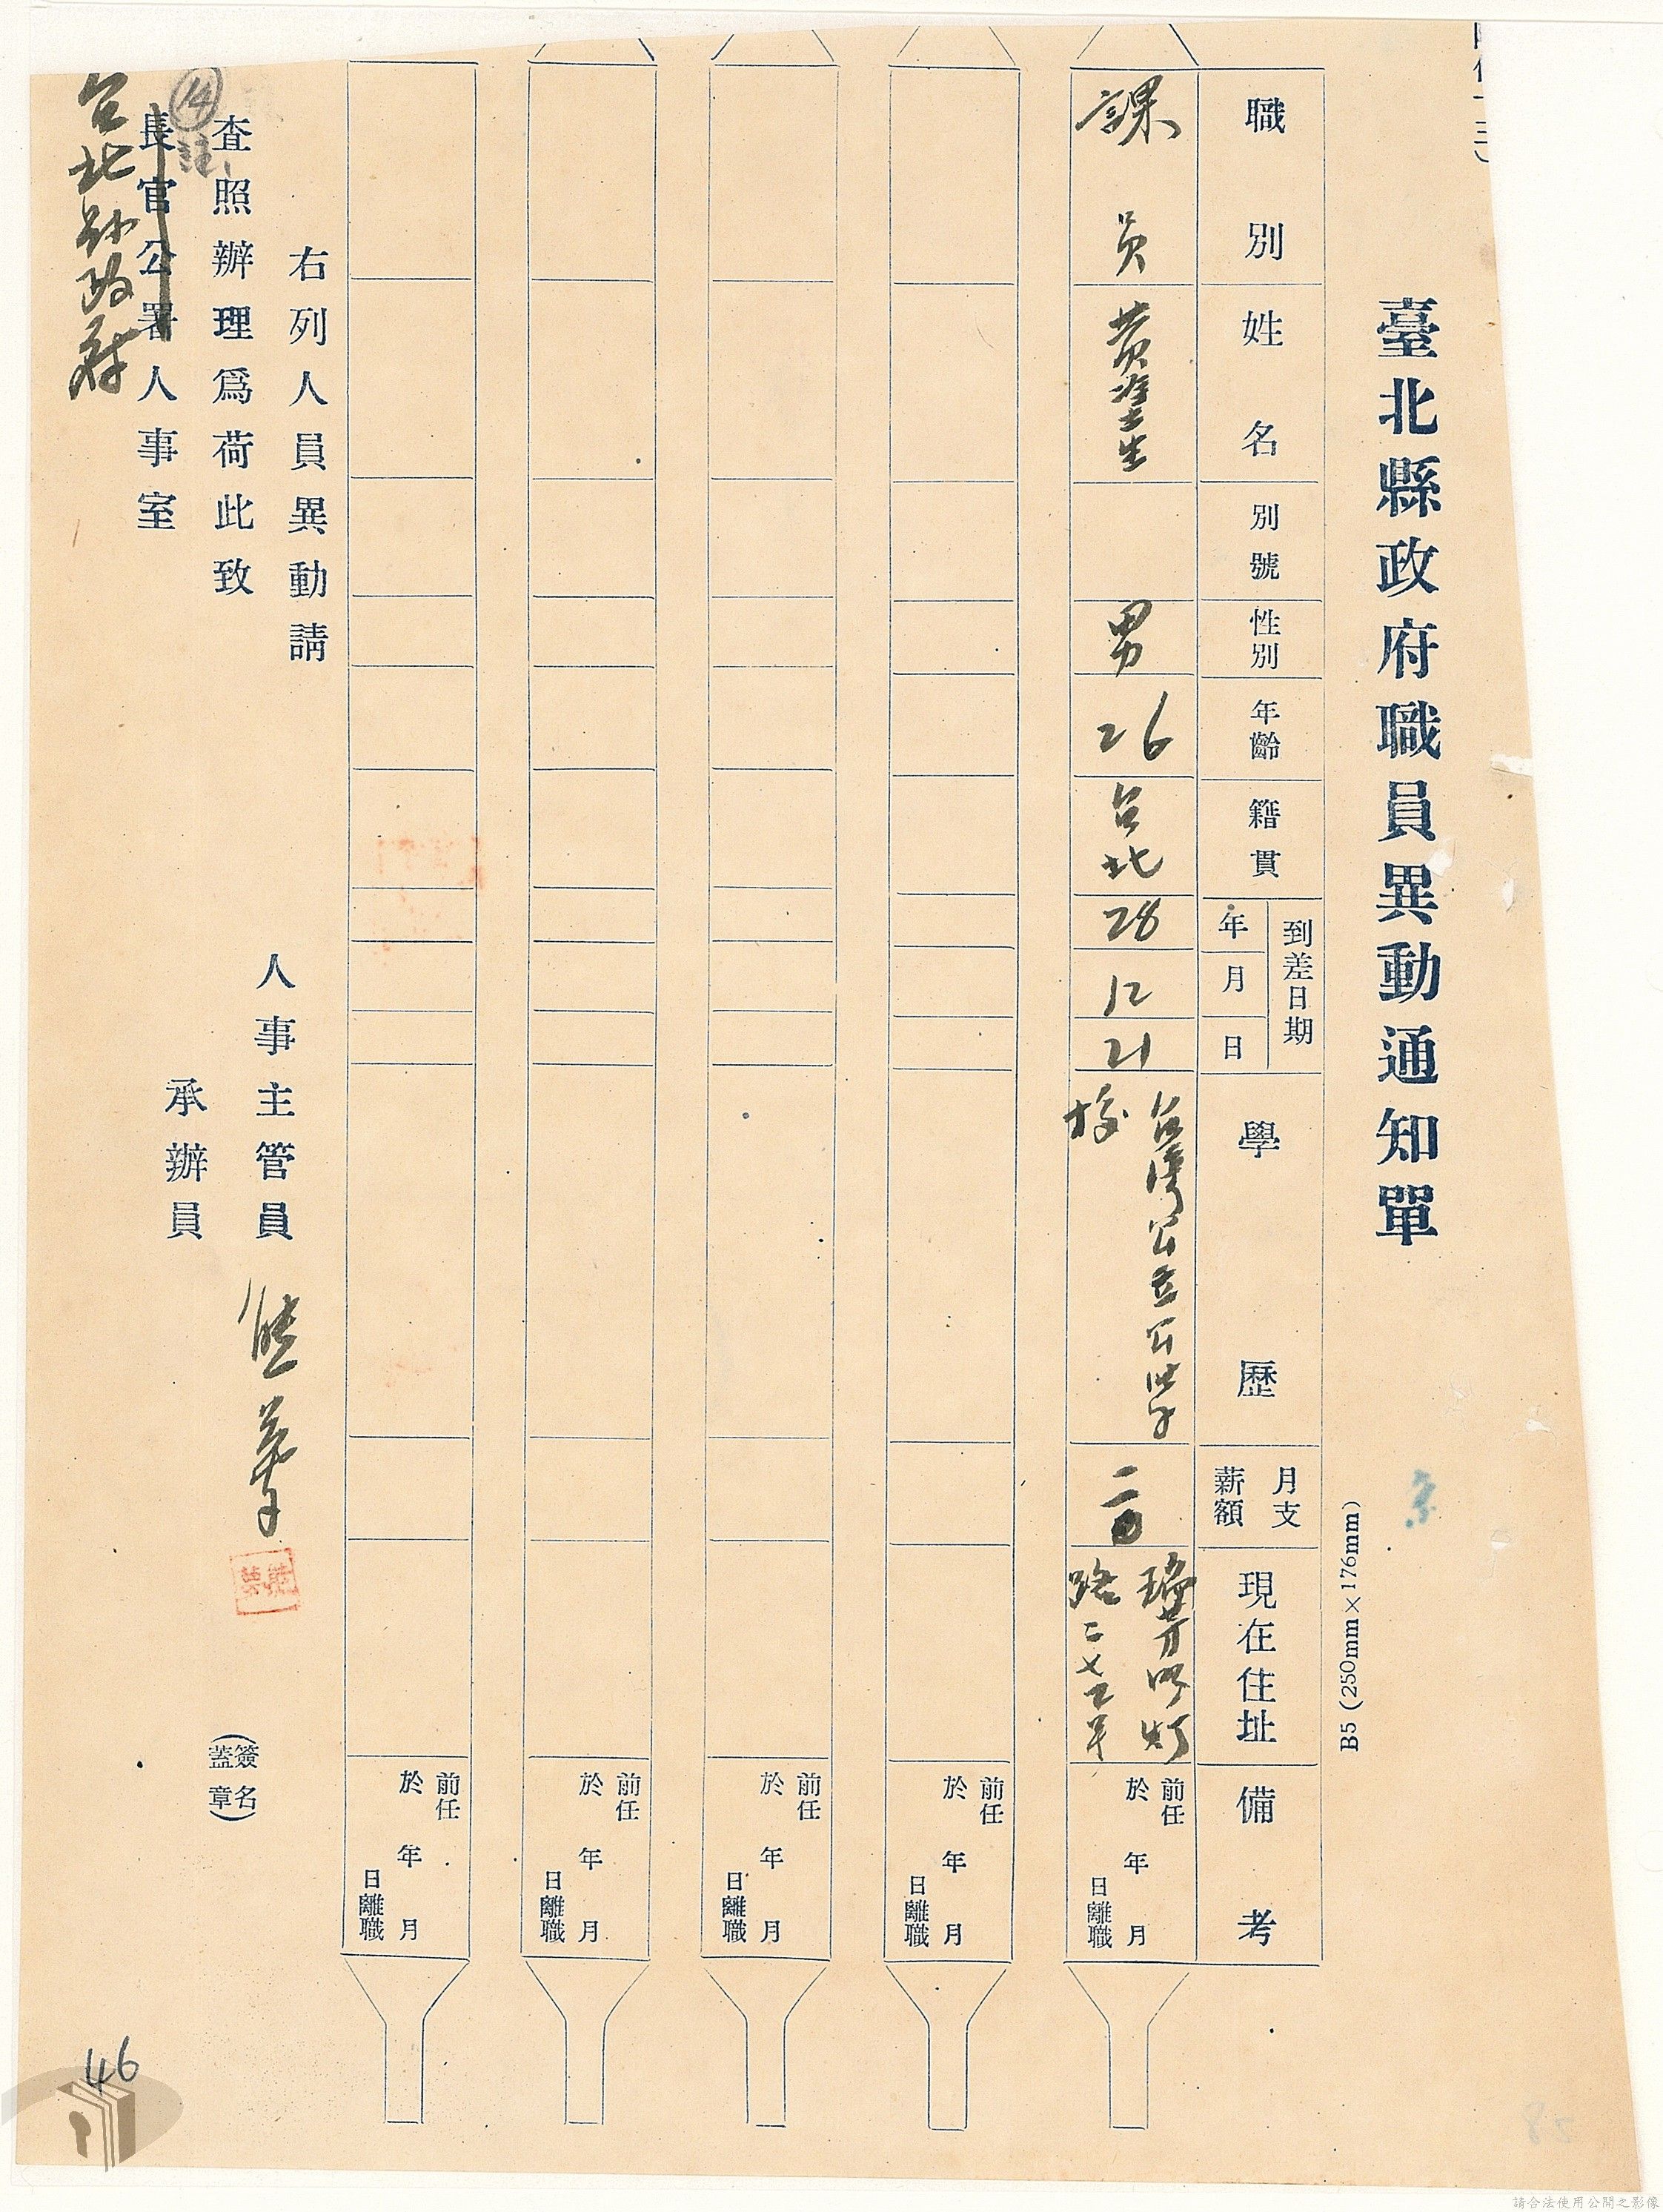 臺北縣政府職員異動通知單
B5 (250mm×176mm)
職別
姓名
別號
性別
年齡
籍貫
到差日期
年
月
日
學歷
月支薪額
現在住址
備考
課員
男
26
台北
28
12
21
台灣公立公學校
路二七五
前任
於 年 月
日離職
前任
於 年 月
日離職
前任
於 年 月
日離職
前任
於 年 月
日離職
前任
於 年 月
日離職
右列人員異動請
查照辦理爲荷此致
長官公署人事室
台北縣政府
14
註
人事主管員
承辦員
(簽名蓋章)
46
82
請合法使用公開之影像